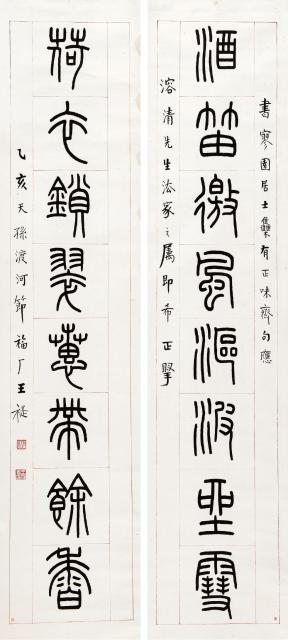 書寥圃居士集有正味齋句應
酒笛風漚波雪
溶清先生法家之屬即希 正擘
荷衣鎖翠蕙帶餘香
乙亥天孫渡河節 福厂王禔